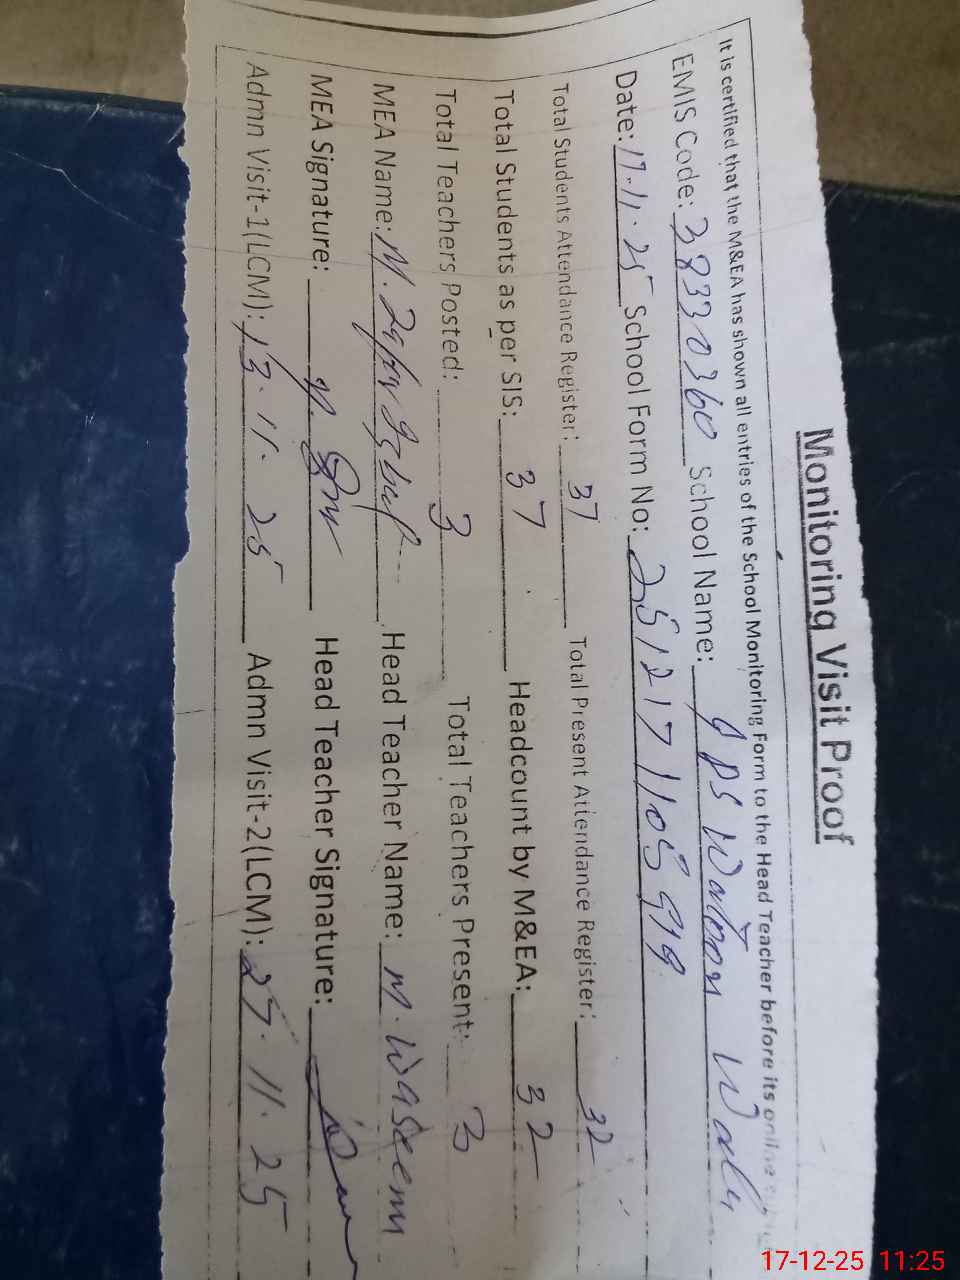 Monitoring Visit Proof
It is certified that the M&EA has shown all entries of the School Monitoring Form to the Head Teacher before its online
EMIS Code: 38330360 School Name: GPS Watoon Wala
Date: 17.11.25 School Form No: 2512171105919
Total Students Attendance Register: 37 Total Present Attendance Register: 32
Total Students as per SIS: 37 Headcount by M&EA: 32
Total Teachers Posted: 3 Total Teachers Present: 3
MEA Name: M. Zafar Iqbal Head Teacher Name: M. Waseem
MEA Signature: Head Teacher Signature:
Admn Visit-1(LCM): 13.11.25 Admn Visit-2(LCM): 27.11.25
17-12-25 11:25